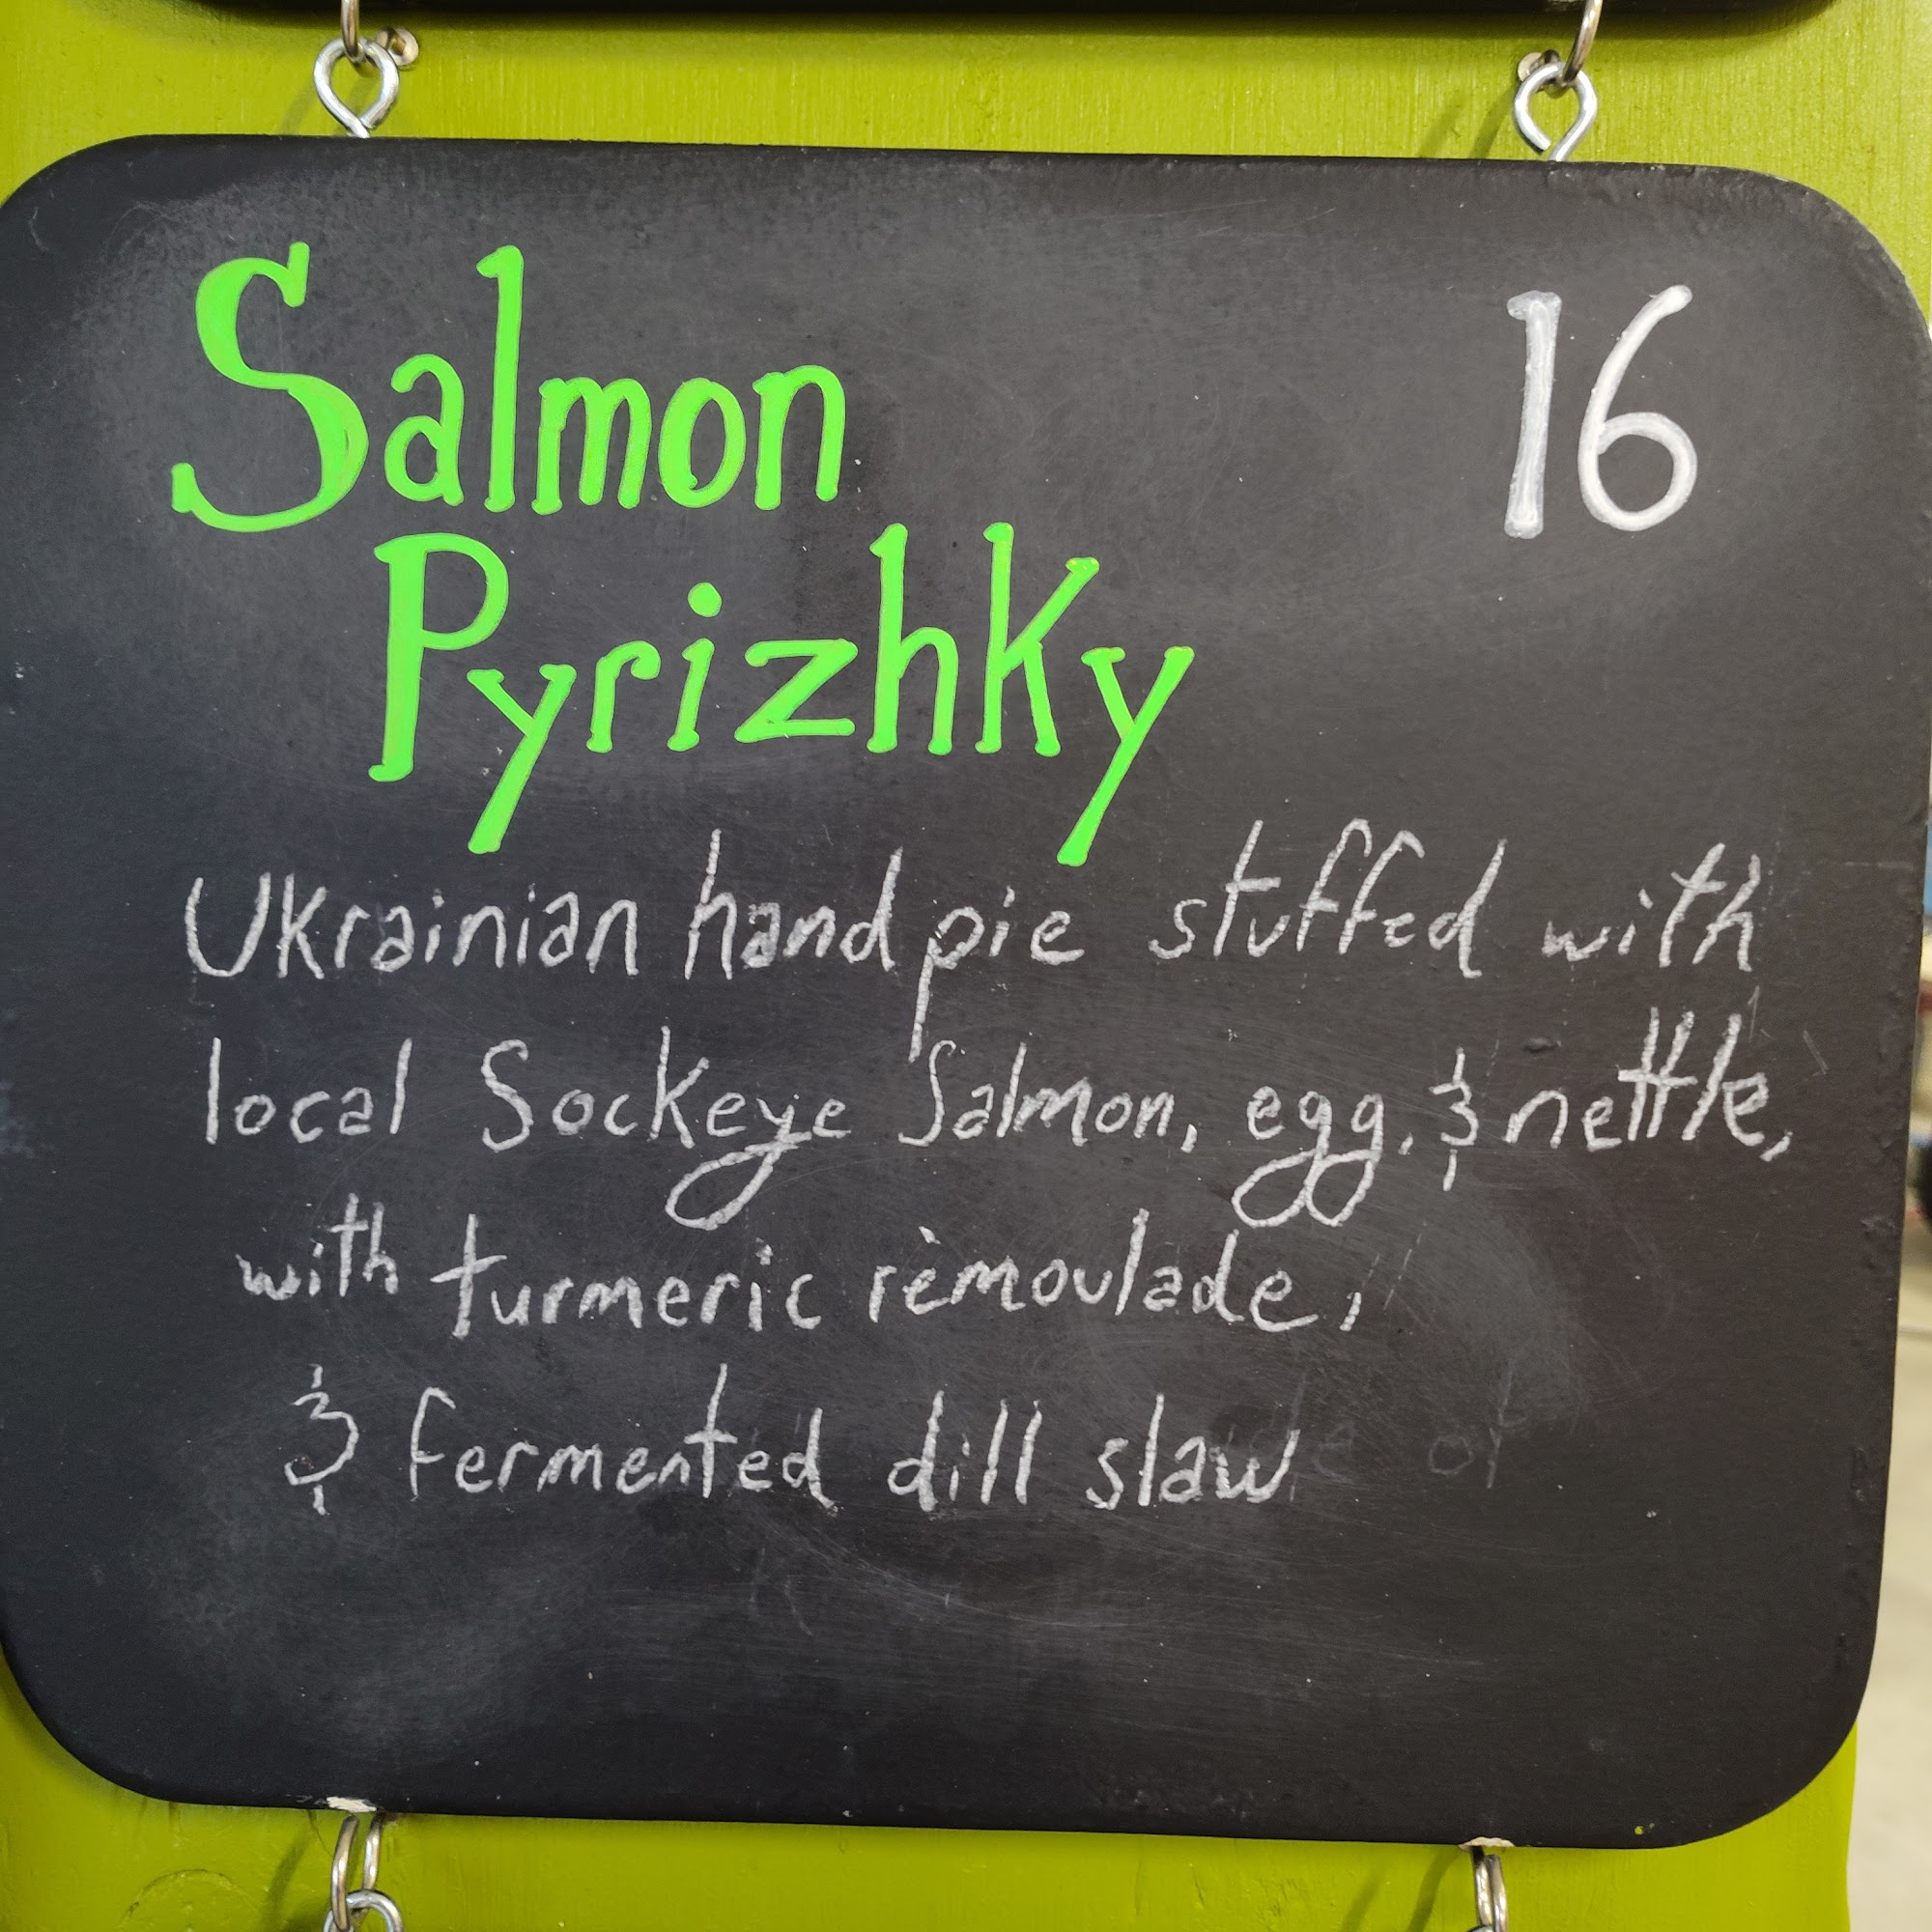 Salmon 16
Pyrizhky
Ukrainian hand pie stuffed with
local Sockeye Salmon, egg, & nettle,
with turmeric rèmoulade,
& fermented dill slaw